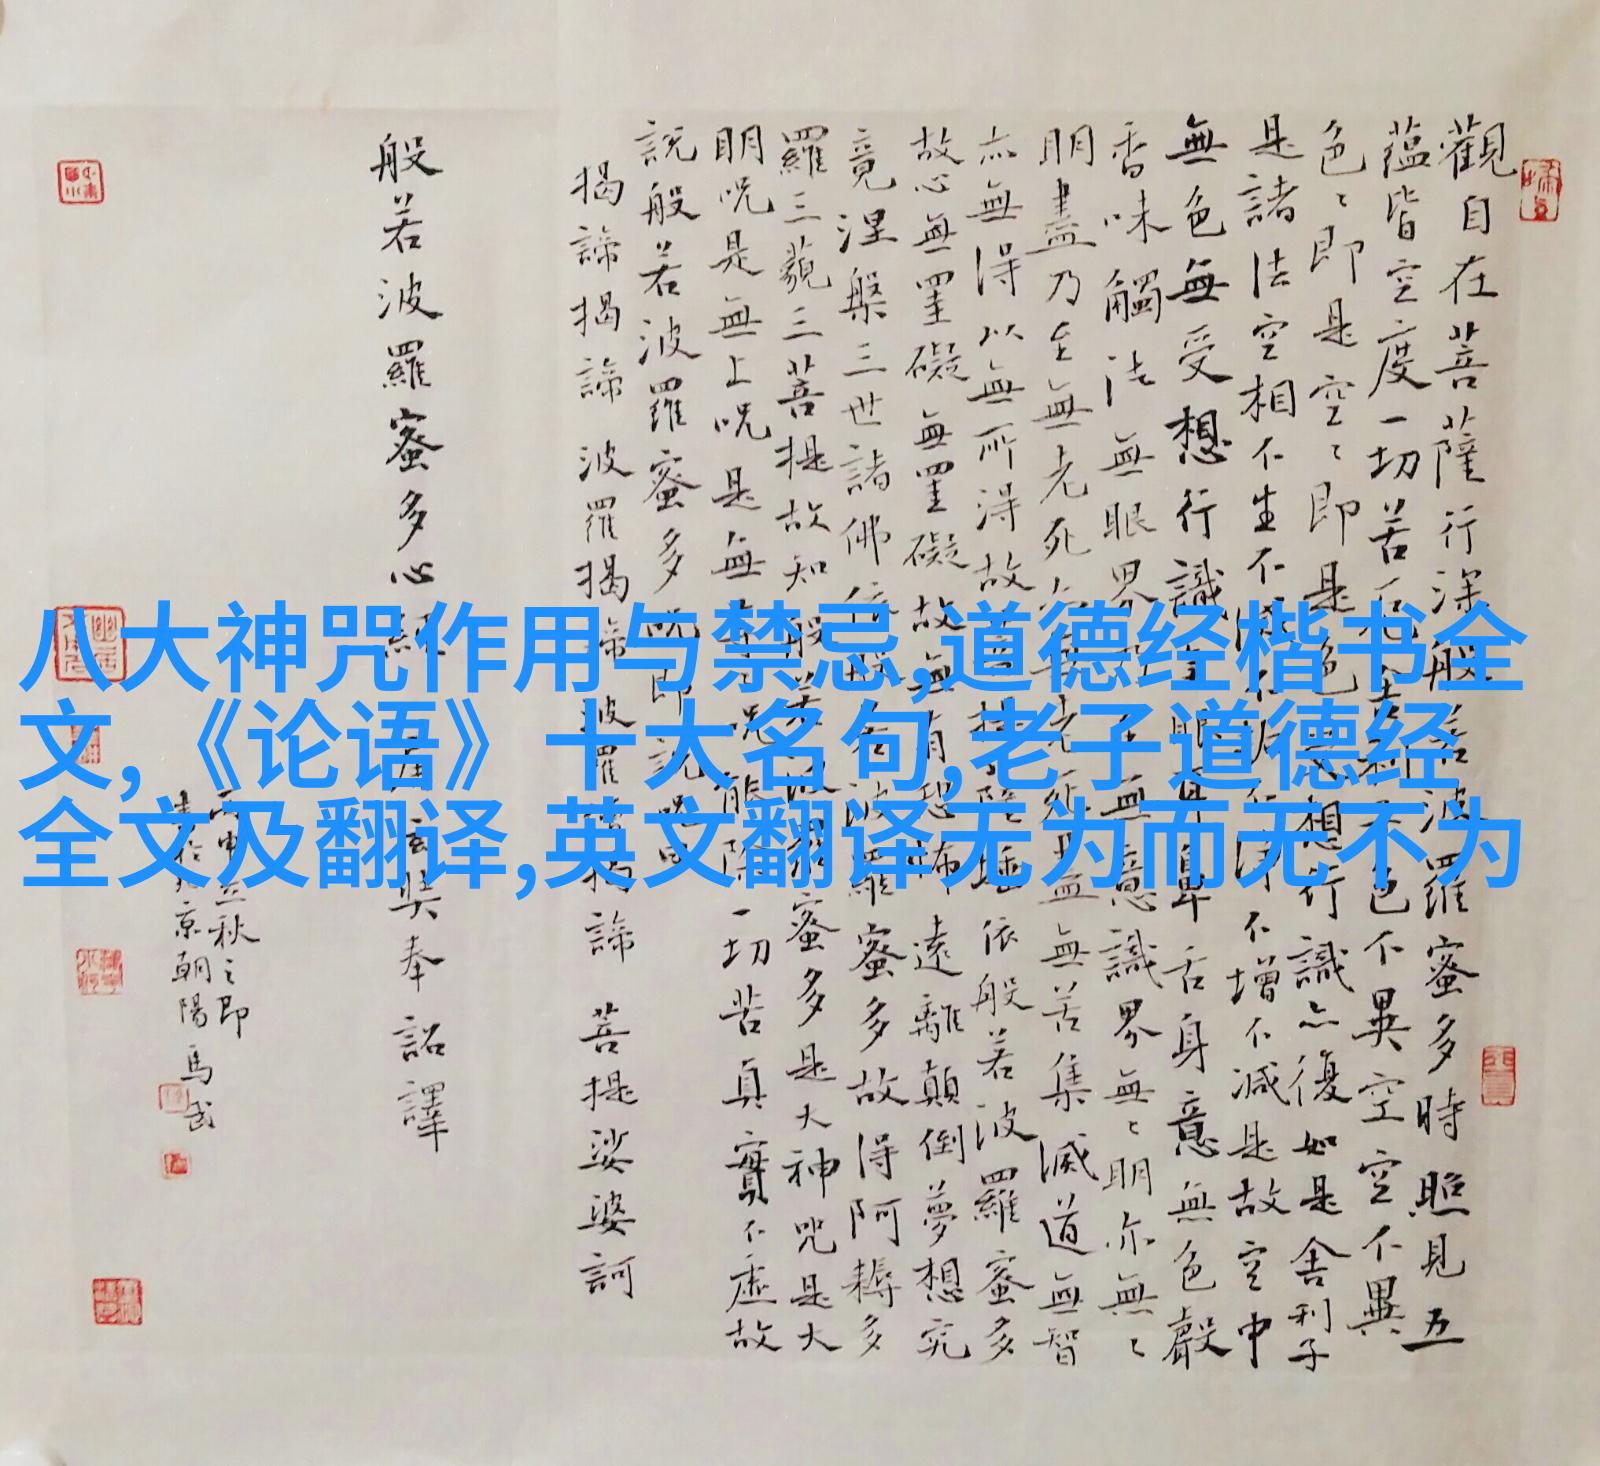 觀自在菩薩行深般若波羅蜜多時照見五
蘊皆空度一切苦厄舍利子色不異空空不異
色〻即是空〻即是色受想行識亦復如是舍利子
是諸法空相不生不滅不垢不淨不增不減是故空中
無色無受想行識無眼耳鼻舌身意無色聲
香味觸法無眼界乃至無意識界無〻明亦無〻
明盡乃至無老死亦無老死盡無苦集滅道無智
亦無得以無所得故菩提薩埵依般若波羅蜜多
故心無罣礙無罣礙故無有恐怖遠離顛倒夢想究
竟涅槃三世諸佛依般若波羅蜜多故得阿耨多
羅三藐三菩提故知般若波羅蜜多是大神咒是大
明咒是無上咒是無等等咒能除一切苦真實不虛故
說般若波羅蜜多咒即說咒曰
揭諦揭諦波羅揭諦波羅僧揭諦菩提娑婆訶
般若波羅蜜多心經 唐玄奘奉詔譯
丙申立秋之即
書於北京朝陽馬
八大神咒作用与禁忌,道德经楷书全
文,《论语》十大名句,老子道德经
全文及翻译,英文翻译无为而无不为